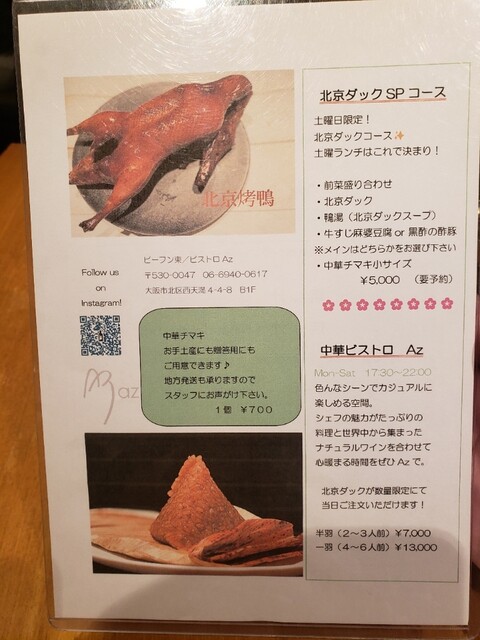 北京烤鴨
ビーフン東／ビストロAz
〒530-0047　06-6940-0617
大阪市北区西天満 4-4-8　B1F
Follow us
on
Instagram!
az
中華チマキ
お手土産にも贈答用にも
ご用意できます♪
地方発送も承りますので
スタッフにお声がけ下さい。
１個　￥７００
北京ダック SP コース
土曜日限定！
北京ダックコース✨
土曜ランチはこれで決まり！
・前菜盛り合わせ
・北京ダック
・鴨湯（北京ダックスープ）
・牛すじ麻婆豆腐 or 黒酢の酢豚
※メインはどちらかをお選び下さい
・中華チマキ小サイズ
￥5,000　（要予約）
中華ビストロ　Az
Mon-Sat　17:30～22:00
色んなシーンでカジュアルに
楽しめる空間。
シェフの魅力がたっぷりの
料理と世界中から集まった
ナチュラルワインを合わせて
心暖まる時間をぜひ Az で。
北京ダックが数量限定にて
当日ご注文いただけます！
半羽（２～３人前）￥7,000
一羽（４～６人前）￥13,000